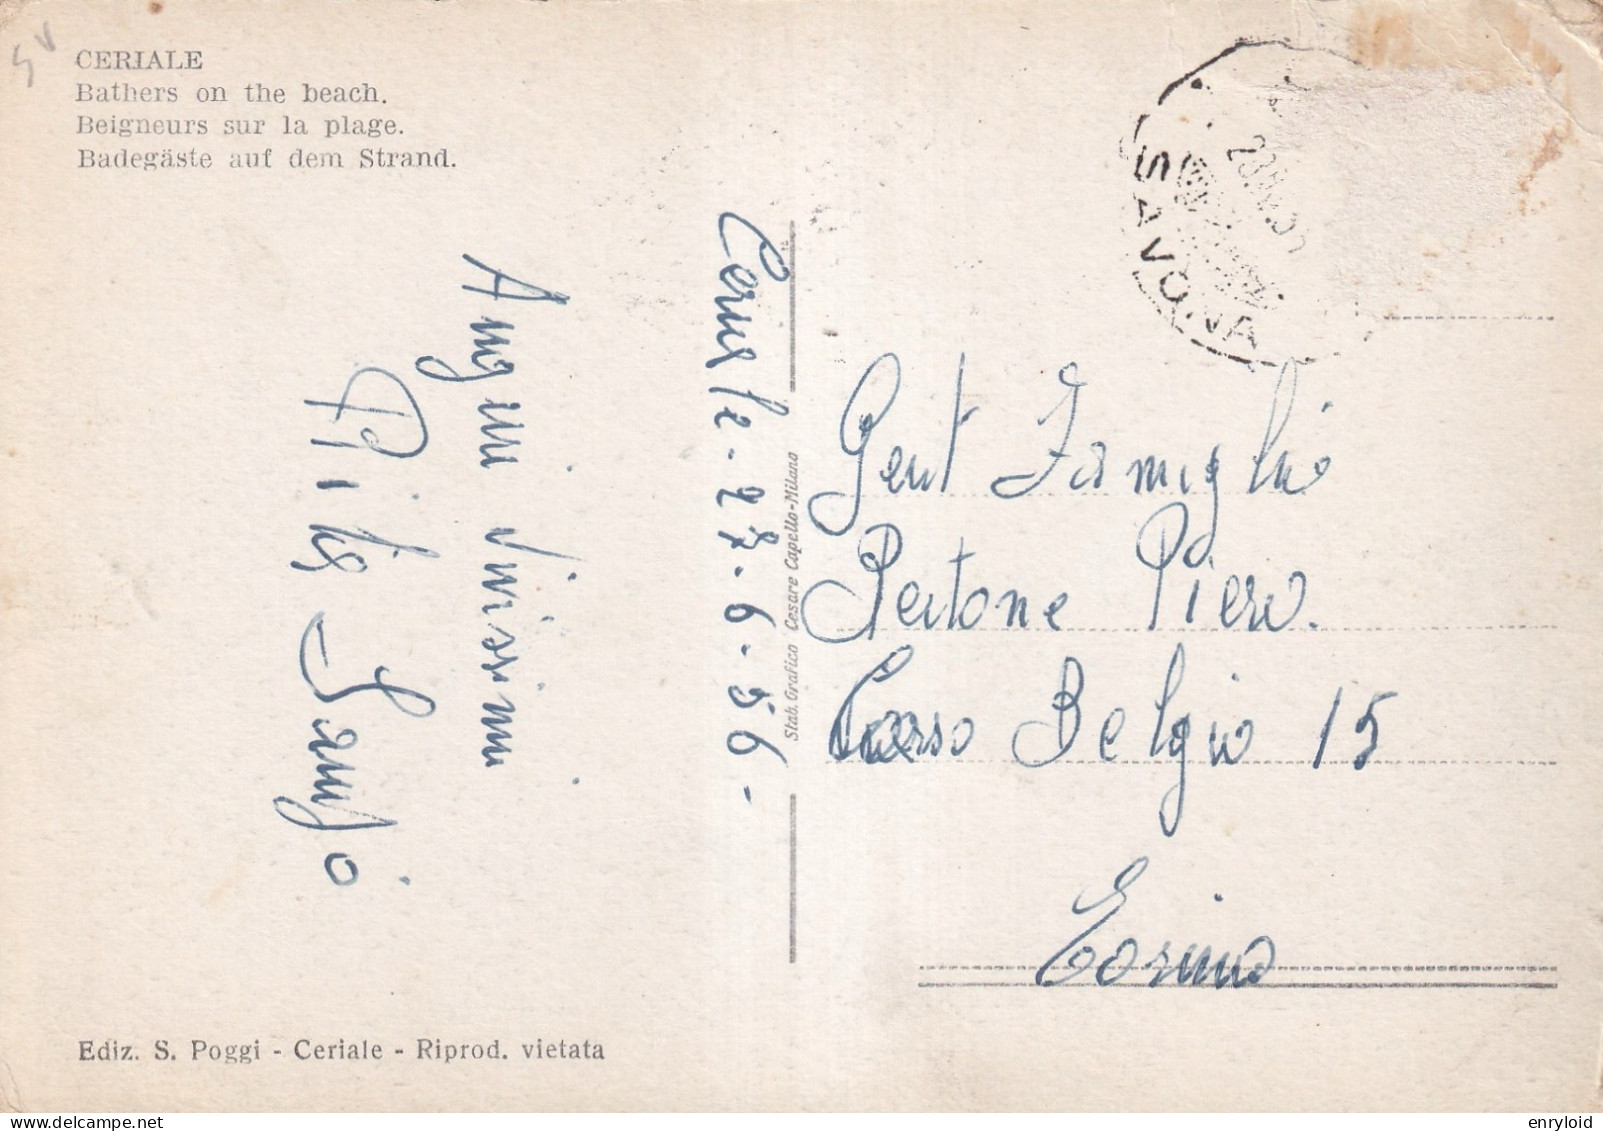 SV
CERIALE
Bathers on the beach.
Beigneurs sur la plage.
Badegäste auf dem Strand.
SAVONA
Ceriale - 27-6-56-
Auguri vivissimi
Stab. Grafico Cesare Capello-Milano
Gent Famiglia
Pertone Piero.
Corso Belgio 15
Torino
Ediz. S. Poggi - Ceriale - Riprod. vietata
enryloid